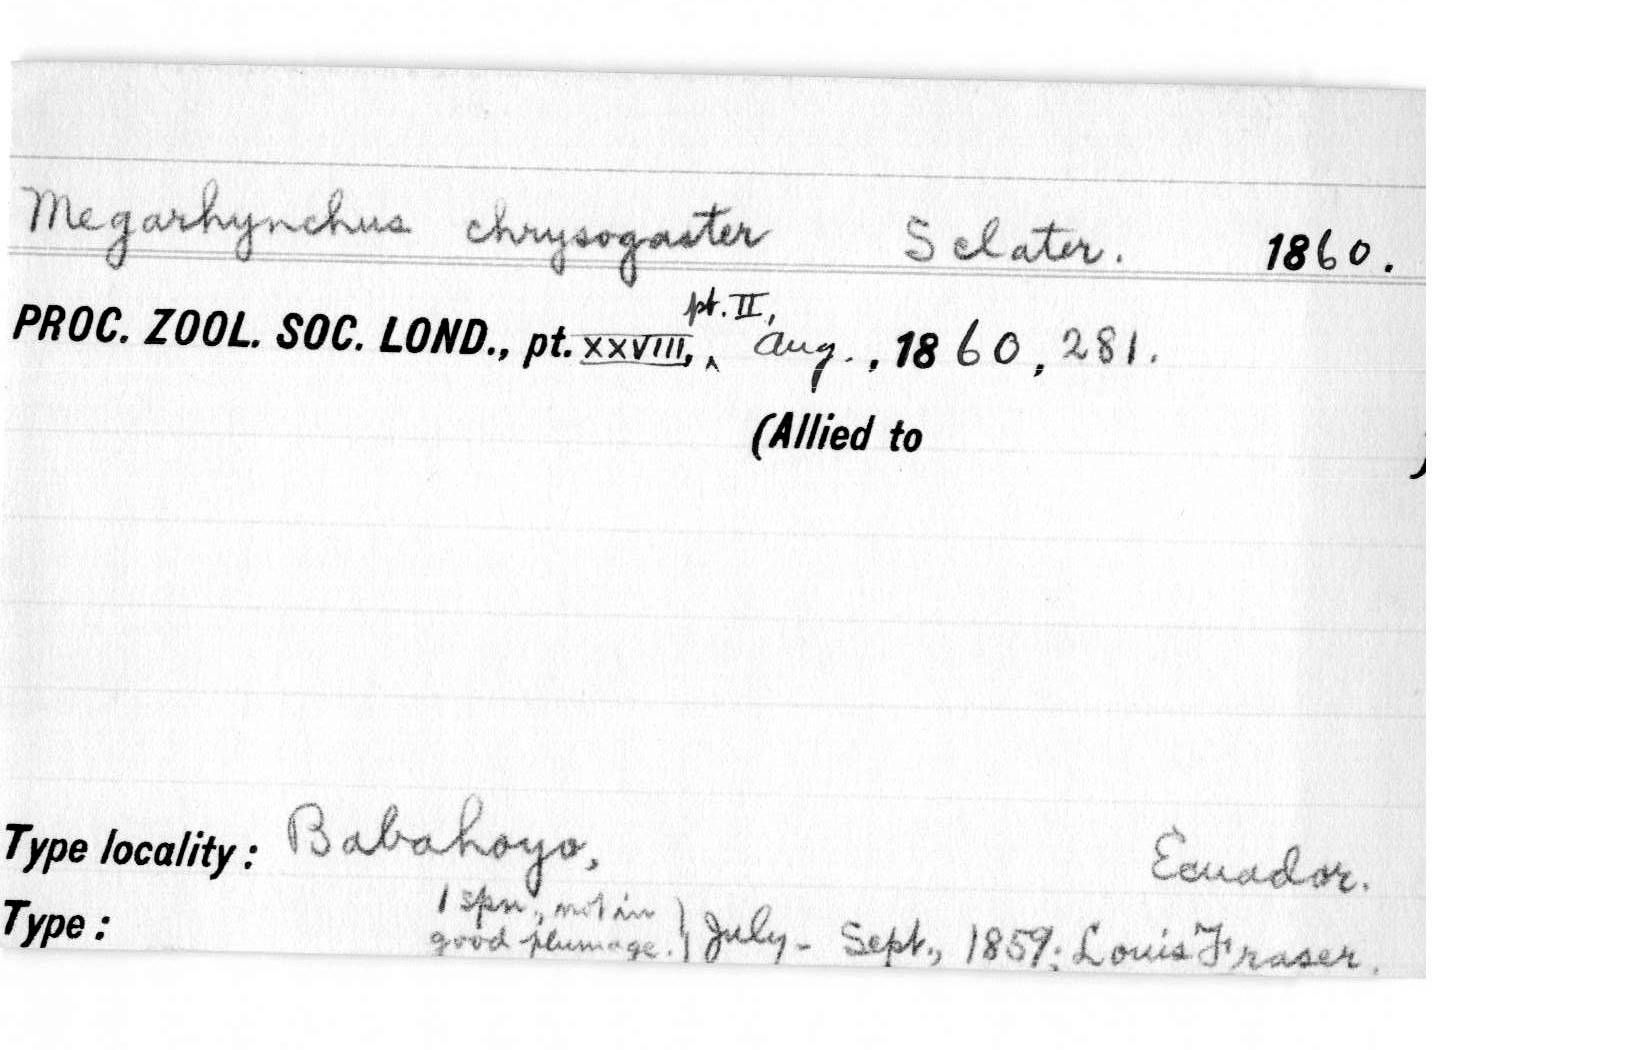 Megarhynchus chrysogaster Sclater. 1860.
pt. II,
PROC. ZOOL. SOC. LOND., pt. XXVIII, ^ Aug., 1860, 281.
(Allied to )
Type locality: Babahoyo, Ecuador.
1 spn., not in
good plumage. } July - Sept., 1859; Louis Fraser.
Type: